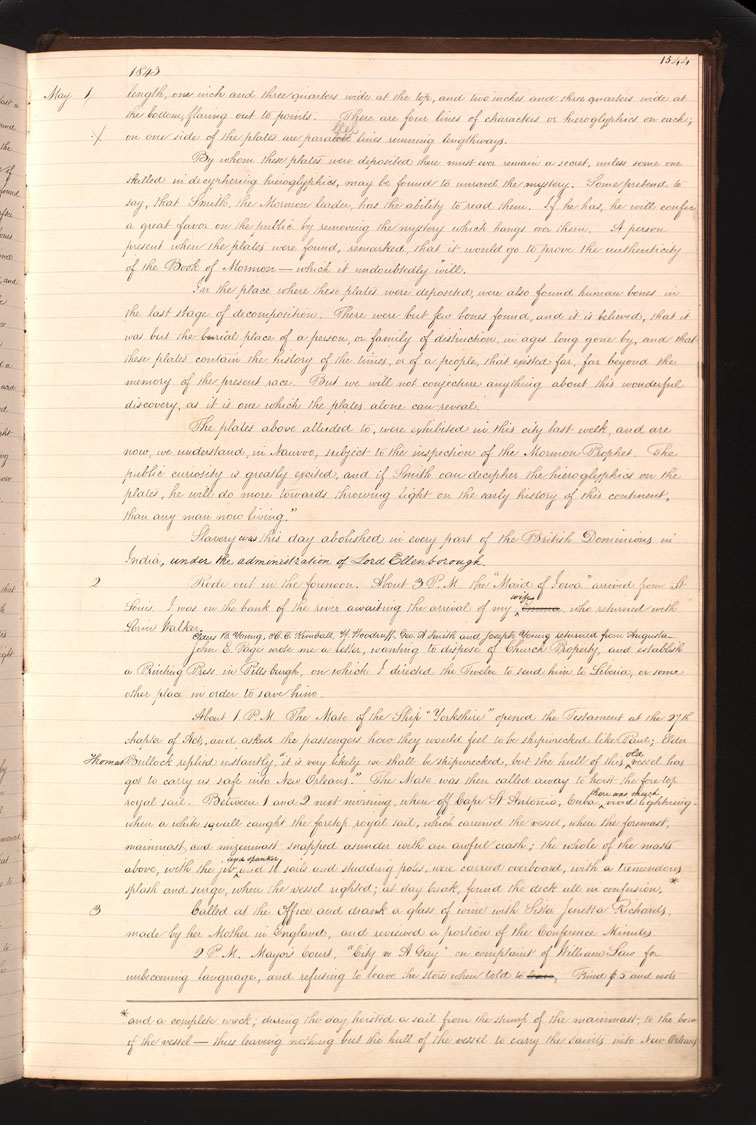 1843
1544
May 1/ length, one inch and three quarters wide at the top, and two inches and three quarters wide at
the bottom, flaring out to points. There are four lines of characters or hieroglyphics on each;
on one side of the plates are parallel lines running lengthways.
By whom these plates were deposited there must ever remain a secret, unless some one
skilled in decyphering hieroglyphics, may be found to unravel the mystery. Some pretend to
say, that Smith, the Mormon leader, has the ability to read them. If he has, he will confer
a great favor on the public by removing the mystery which hangs over them. A person
present when the plates were found, remarked, that it would go to prove the authenticity
of the Book of Mormon — which it undoubtedly will.
In the place where these plates were deposited, were also found human bones in
the last stage of decomposition. There were but few bones found, and it is believed, that it
was but the burial place of a person, or family of distinction, in ages long gone by, and that
these plates contain the history of the times, or of a people, that existed far, far beyond the
memory of the present race. But we will not conjecture anything about this wonderful
discovery, as it is one which the plates alone can reveal.
The plates above alluded to, were exhibited in this city last week, and are
now, we understand, in Nauvoo, subject to the inspection of the Mormon Prophet. The
public curiosity is greatly excited, and if Smith can decipher the hieroglyphics on the
plates, he will do more towards throwing light on the early history of this continent,
than any man now living."
Slavery was this day abolished in every part of the British Dominions in
India, under the administration of Lord Ellenborough.
2 Rode out in the forenoon. About 3 P.M. the "Maid of Iowa" arrived from St
Louis. I was on the bank of the river awaiting the arrival of my wife Emma, who returned with
Lorin Walker.
Elders B. Young, H. C. Kimball, W. Woodruff, Geo. A Smith and Joseph Young returned from Augusta.
John E. Page wrote me a letter, wanting to dispose of Church Property, and establish
a Printing Press in Pittsburgh, on which I directed the Twelve to send him to Liberia, or some
other place in order to save him.
About 1 P.M. The Mate of the Ship "Yorkshire" opened the Testament at the 27th
chapter of Acts, and asked the passengers how they would feel to be shipwrecked like Paul; Elder
Thomas Bullock replied instantly, it is very likely we shall be shipwrecked, but the hull of this old vessel has
got to carry us safe into New Orleans." The Mate was then called away to hoist the fore top
royal sail. Between 1 and 2 next morning, when off Cape St Antonio, Cuba, there was much vivid lightning
when a white squall caught the foretop royal sail, which careened the vessel, when the foremast,
mainmast, and mizenmast snapped asunder with an awful crash; the whole of the masts
above, with the jib and spanker, and 16 sails and studding poles, were carried overboard, with a tremendous
splash and surge, when the vessel righted; at day break, found the deck all in confusion, *
3 Called at the Office and drank a glass of wine with Sister Jenetta Richards,
made by her Mother in England, and reviewed a portion of the Conference Minutes.
2 P.M. Mayor's Court, "City vs A Gay" on complaint of William Law for
unbecoming language, and refusing to leave the store when told to leave, Fined $5 and costs
* and a complete wreck; during the day hoisted a sail from the stump of the mainmast, to the bow
of the vessel — thus leaving nothing but the hull of the vessel to carry the Saints into New Orleans